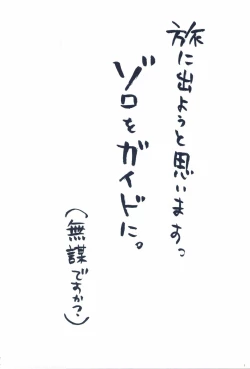 旅に出ようと思います。
ゾロをガイドに。
(無謀ですか?)